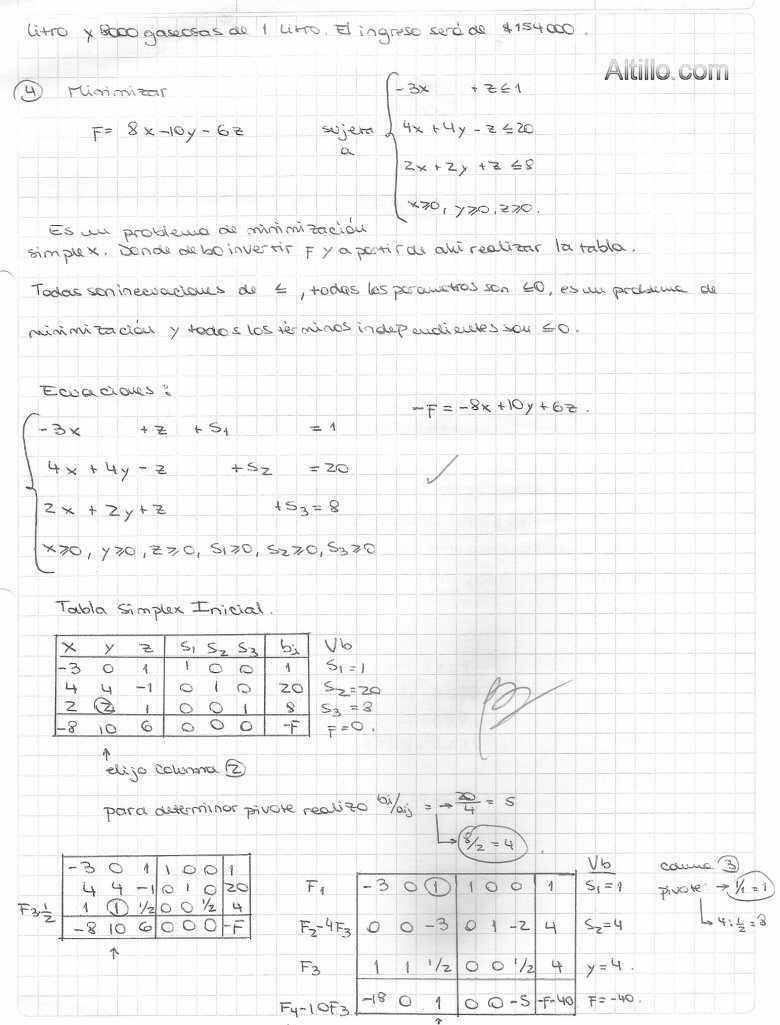 litro y 8000 gaseosas de 1 Litro. El ingreso será de $154000.
Altillo.com
④ Minimizar
F= 8x-10y-6z
sujeta a
-3x + z ≤ 1
4x + 4y - z ≤ 20
2x + 2y + z ≤ 8
x≥0, y≥0, z≥0.
Es un problema de minimización
simplex. Donde debo invertir F y a partir de ahí realizar la tabla.
Todas son inecuaciones de ≤, todas los parametros son ≤0, es un problema de
minimización y todos los términos independientes son ≤0.
Ecuaciones:
-F = -8x+10y+6z.
-3x + z + S1 = 1
4x + 4y - z + S2 = 20
2x + 2y + z + S3 = 8
x≥0, y≥0, z≥0, S1≥0, S2≥0, S3≥0
Tabla Simplex Inicial.
x y z S1 S2 S3 bi Vb
-3 0 1 1 0 0 1 S1=1
4 4 -1 0 1 0 20 S2=20
2 ② 1 0 0 1 8 S3=8
-8 10 6 0 0 0 -F F=0.
↑
elijo columna ②
para determinar pivote realizo bi/aij = → 20/4 = 5
↳ 8/2 = 4
-3 0 1 1 0 0 1
4 4 -1 0 1 0 20
F3 1/2 1 ① 1/2 0 0 1/2 4
-8 10 6 0 0 0 -F
↑
Vb
F1 -3 0 ① 1 0 0 1 S1=1
F2-4F3 0 0 -3 0 1 -2 4 S2=4
F3 1 1 1/2 0 0 1/2 4 y=4.
F4-10F3 -18 0 1 0 0 -5 -F-40 F=-40.
↑
columna ③
pivote → 1/1 = 1
↳ 4:1/2=8